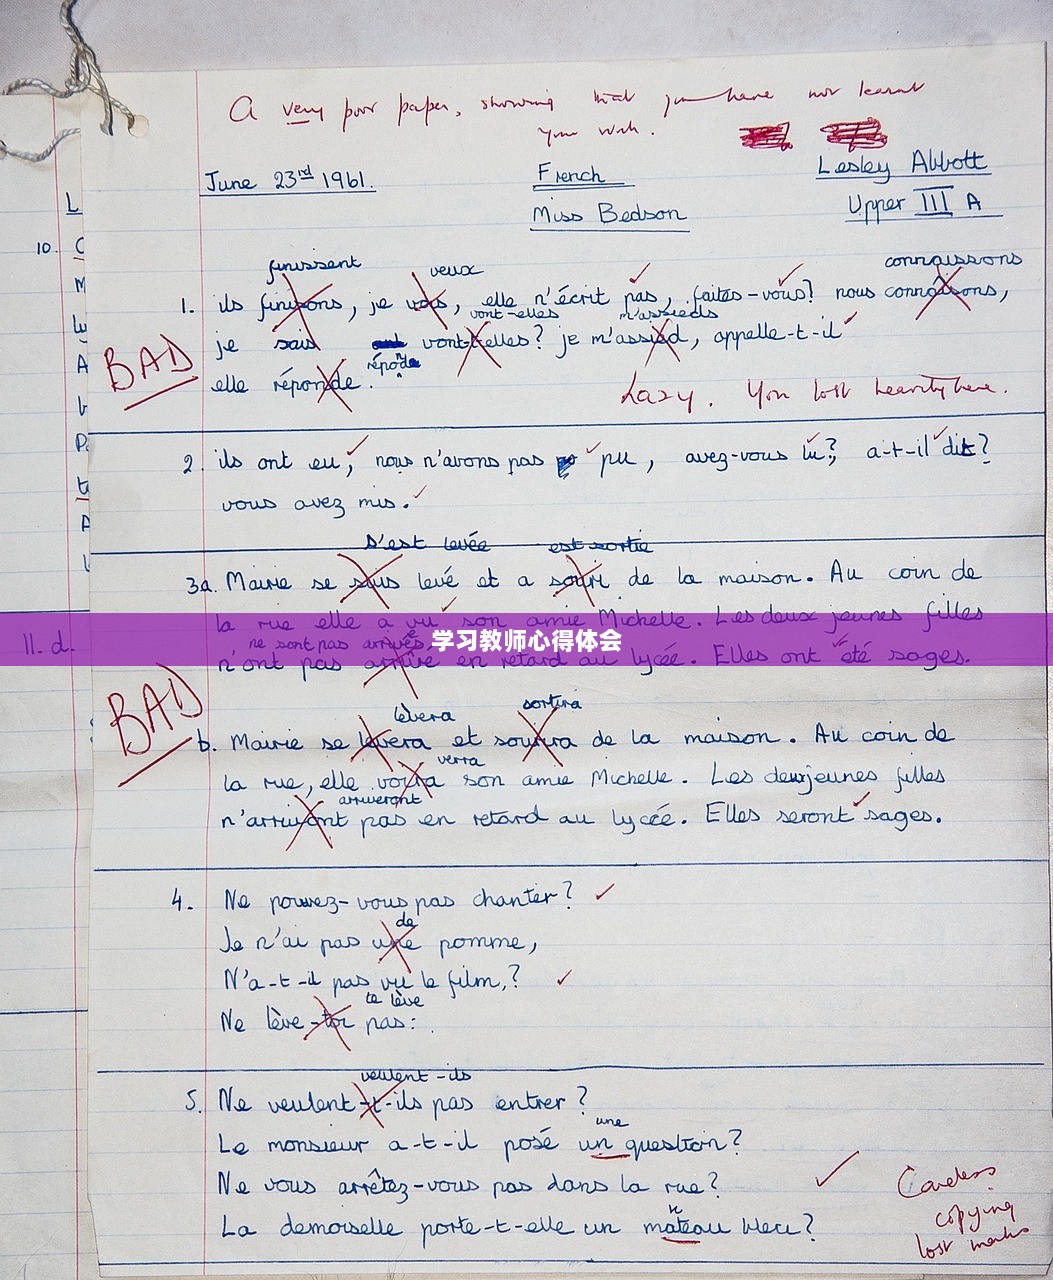 A very poor paper, showing that you have not learnt
your work.
June 23rd 1961.
French
Lesley Abbott
Miss Bedson
Upper III A
finissent veux connaissons
1. ils finisons, je vois, elle n'écrit pas, faites-vous? nous connaîsons,
vont-elles m'assieds
je sais vont-t-elles? je m'assied, appelle-t-il
BAD
elle réponde.
Lazy. You lost heavily here.
10.
2. ils ont eu, nous n'avons pas pu, avez-vous lu?, a-t-il dit?
vous avez mis.
s'est levée est sortie
3a. Mairie se suis levé et a souri de la maison. Au coin de
la rue elle a vu son amie Michelle. Les deux jeunes filles
ne sont pas arrivés
学习教师心得体会
11. d.
n'ont pas arrivé en retard au lycée. Elles ont été sages.
BAD
lèvera sortira
b. Mairie se levera et sourira de la maison. Au coin de
verra
la rue, elle voira son amie Michelle. Les deux jeunes filles
arriveront
n'arrivont pas en retard au lycée. Elles seront sages.
4. Ne pouvez-vous pas chanter?
de
Je n'ai pas une pomme,
N'a-t-il pas vu le film,?
te lève
Ne lève-toi pas:
veulent-ils
5. Ne veulent-t-ils pas entrer?
une
Le monsieur a-t-il posé un question?
Ne vous arrêtez-vous pas dans la rue?
La demoiselle porte-t-elle un mateau bleu?
Careless
copying
lost marks